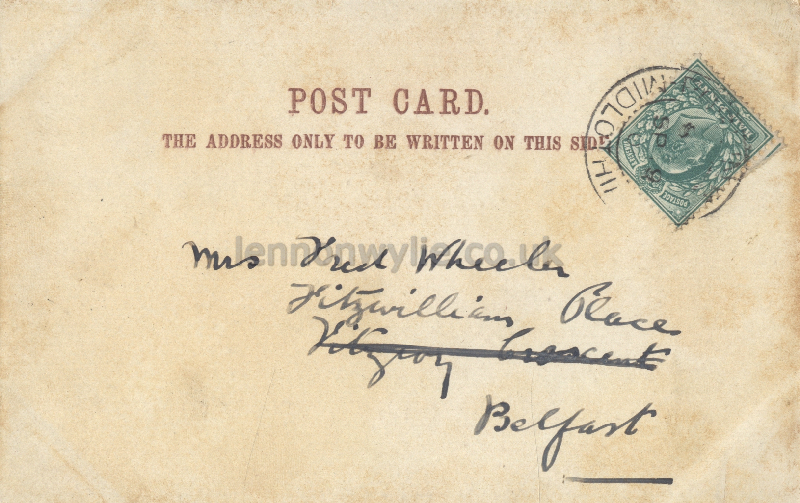 POST CARD.
THE ADDRESS ONLY TO BE WRITTEN ON THIS SIDE
MIDLO
SP
lennonwylie.co.uk
Mrs Fred Wheeler
Fitzwilliam Place
Fitzroy Crescent
Belfast
POSTAGE